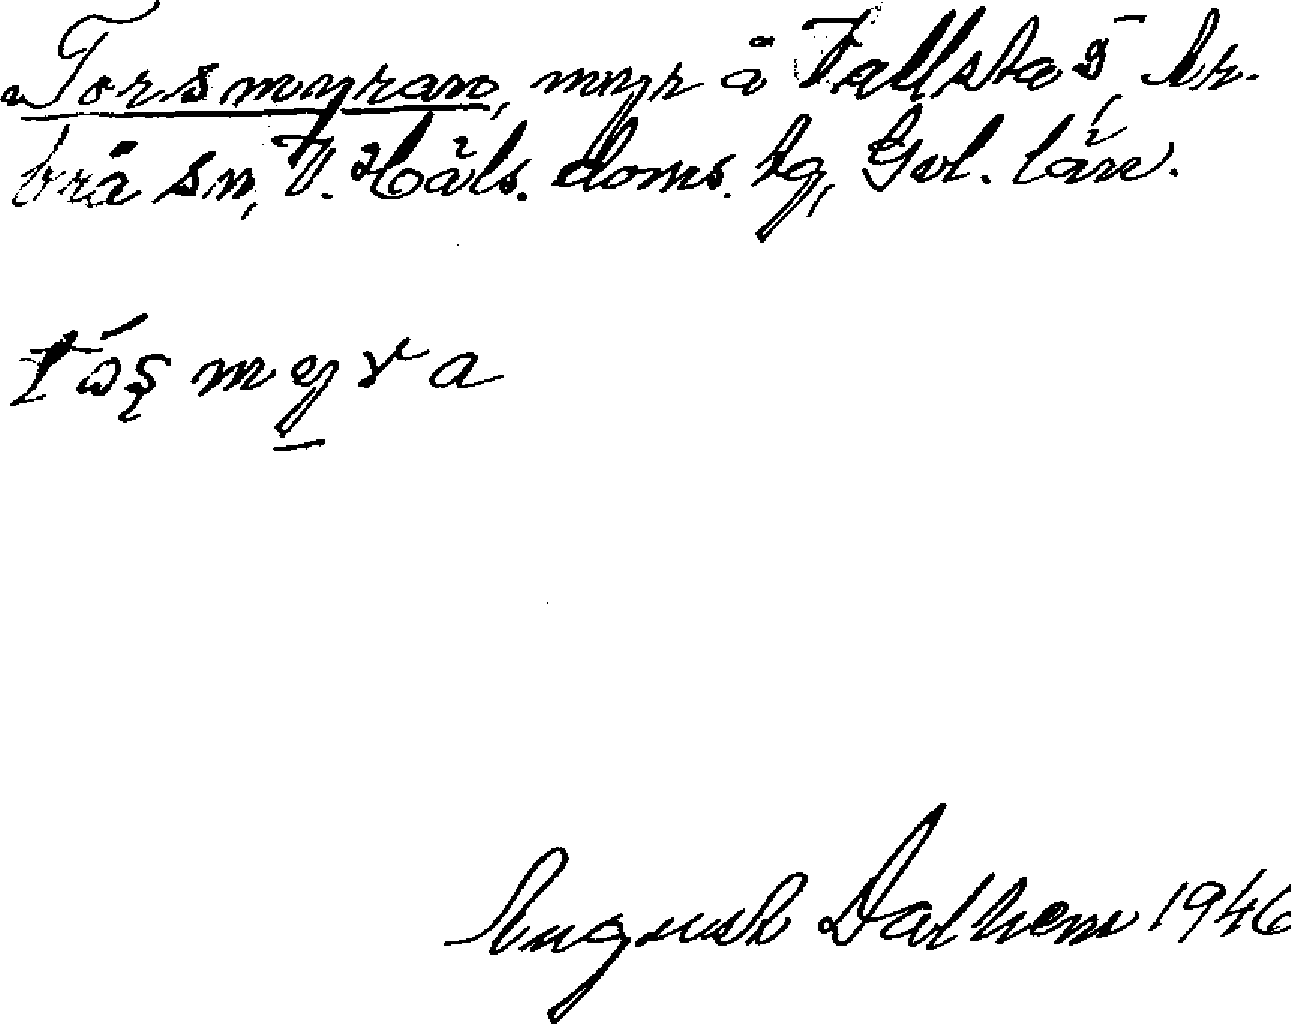 Torsmyran, myr å Vallsta s, Ar-
brå sn, V. Häls. doms. hg, Gvl. län.
tóșmyra
August Dalhem 1946